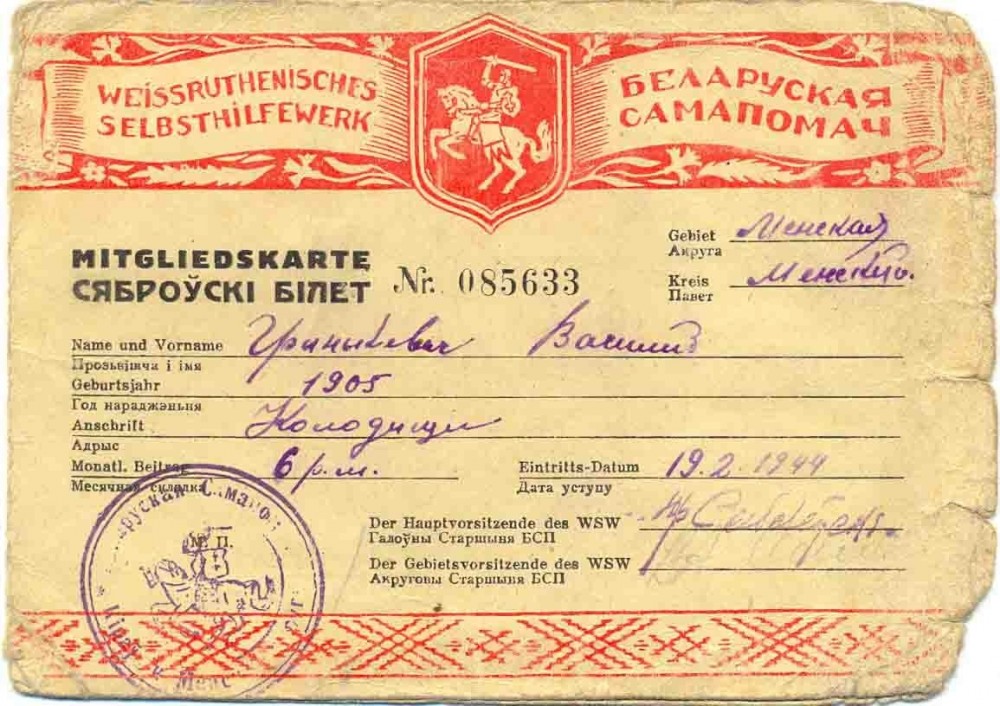 WEISSRUTHENISCHES
SELBSTHILFEWERK
БЕЛАРУСКАЯ
САМАПОМАЧ
MITGLIEDSKARTE
СЯБРОЎСКІ БІЛЕТ
Nr. 085633
Gebiet Менская
Акруга
Kreis Менский
Павет
Name und Vorname Гринькевич Василий
Прозьвішча і імя
Geburtsjahr 1905
Год нараджэньня
Anschrift Колодищи
Адрыс
Monatl. Beitrag 6 р.м.
Месячная складка
Eintritts-Datum 19.2.1944
Дата уступу
Der Hauptvorsitzende des WSW
Галоўны Старшыня БСП
Der Gebietsvorsitzende des WSW
Акруговы Старшыня БСП
М. П.